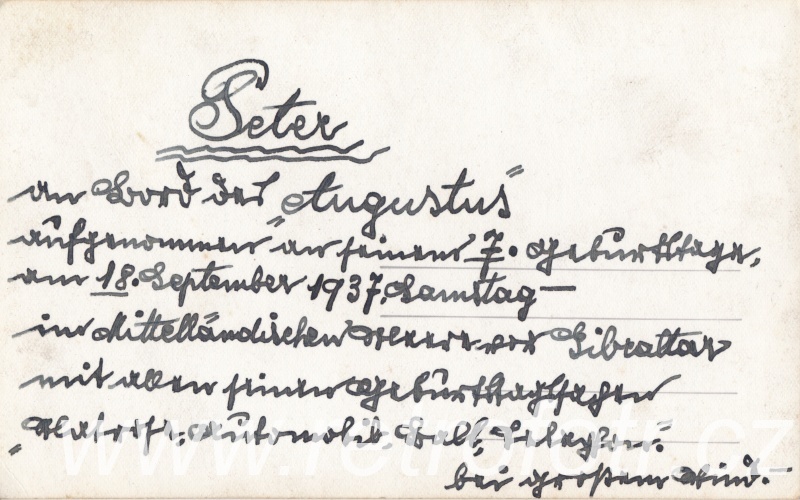 Peter
an Bord des „Augustus"
aufgenommen an seinem 7. Geburtstage,
am 18. September 1937, Samstag –
im Mittelländischen Meere vor Gibraltar
mit allen seinen Geburtstagssachen
„ Automobil, Ball,
bei großem Wind. –
www.retrofoto.cz